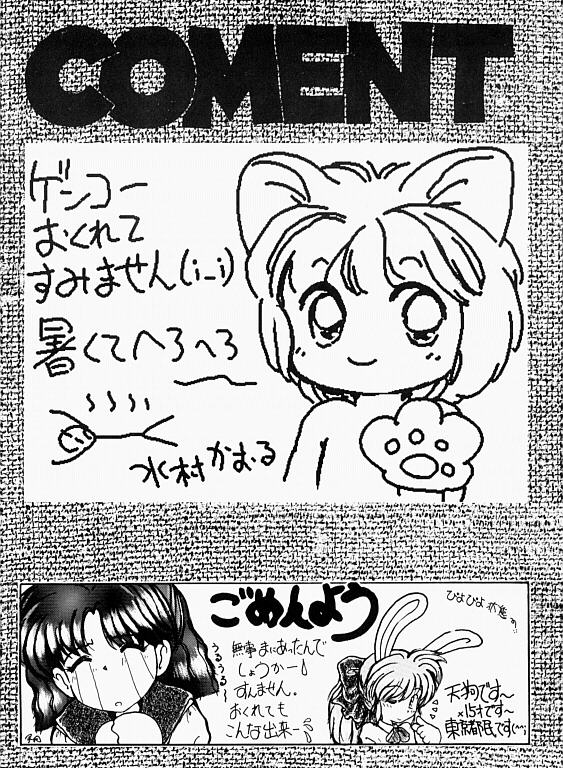 COMENT
ゲンコー
おくれて
すみません(i_i)
暑くてへろへろ
水村かおる
ごめんよう
うるうる〜
無事まにあったんで
しょうかー!
すんません。
おくれても
こんな出来ー
ひよひよ状態
天狗です〜
東京都民です(^^;)